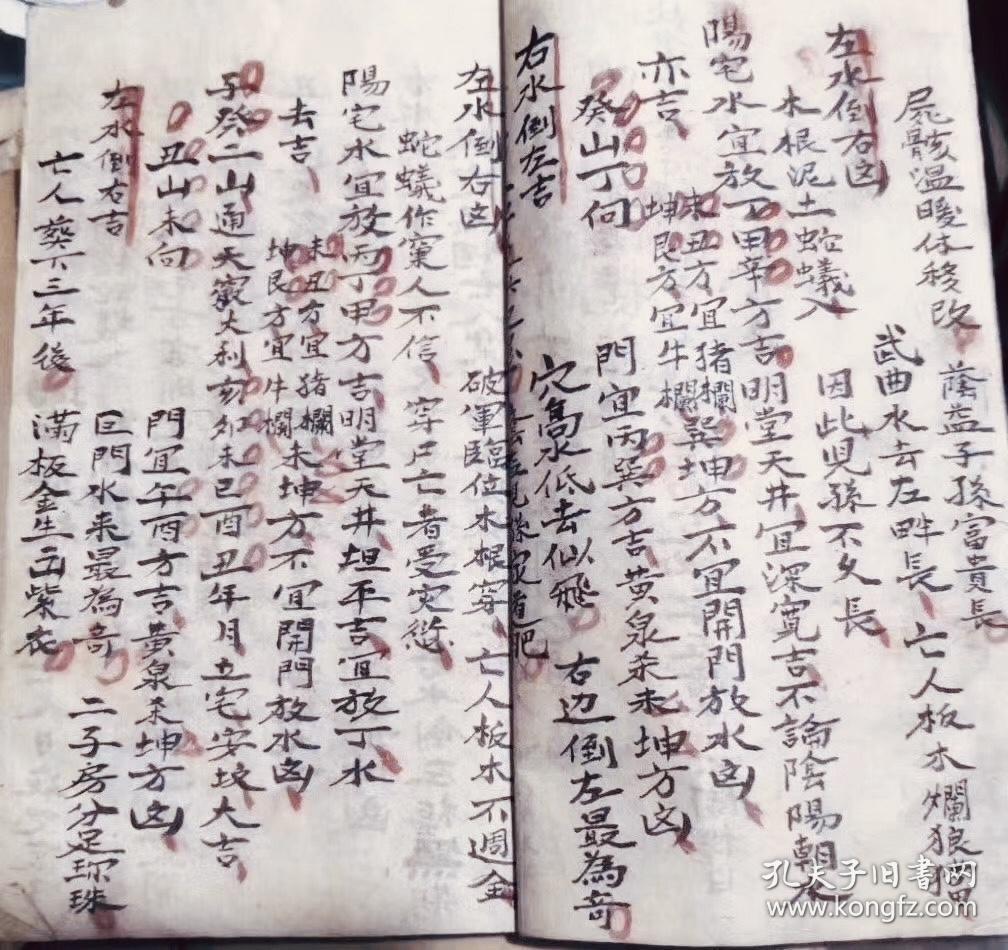 屍骸溫暖休移改　蔭益子孫富貴長
左水倒右凶　武曲水去左畔長　亡人板木爛狼猖
木根泥土蛇蟻入　因此児孫不久長
陽宅水宜放丁甲辛方吉明堂天井宜深寛吉不論陰陽朝水
亦吉　未丑方宜猪欄巽坤方不宜開門放水凶
坤艮方宜牛欄
癸山丁向　門宜丙巽方吉黄泉杀未坤方凶
右水倒左吉　穴高水低去似飛　右边倒左最為奇
左水倒右凶　破軍臨位木根穿　亡人板木不週全
蛇蟻作窠人不信　穿尸亡者受灾愆
陽宅水宜放丙丁甲方吉明堂天井坦平吉宜放丁水
去吉　未丑方宜猪欄未坤方不宜開門放水凶
坤艮方宜牛欄
子癸二山通天竅大利亥卯未巳酉丑年月立宅安坟大吉
丑山未向　門宜午酉方吉黄泉杀坤方凶
左水倒右吉　巨門水来最為奇　二子房分足珎珠
亡人葬下三年後　滿板金生云紫衣
孔夫子旧書网
www.kongfz.com